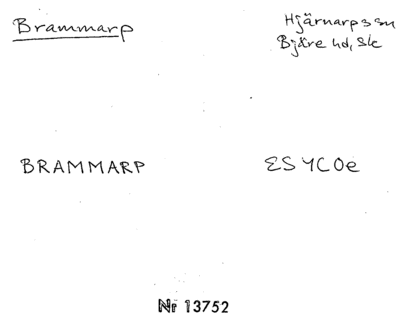 Brammarp
Hjärnarps sn
Bjäre hd, Sk
BRAMMARP
ESYCOe
Nr 13752